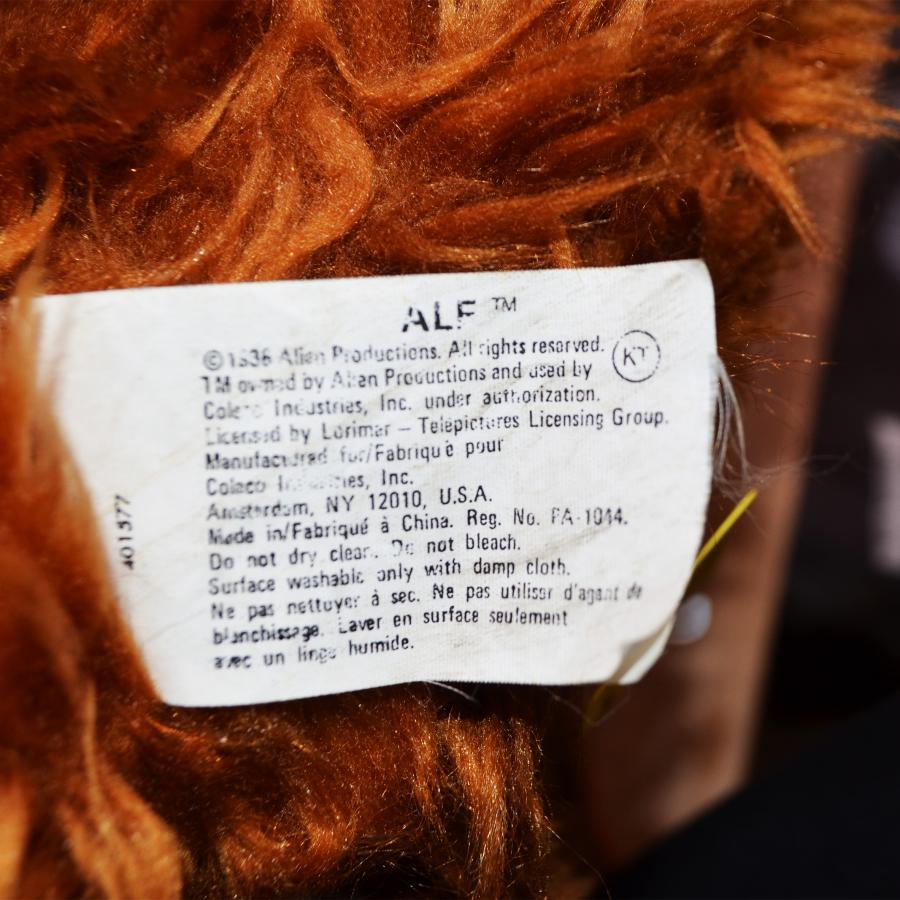 ALF ™
© 1986 Alien Productions. All rights reserved.
KT
TM owned by Alien Productions and used by
Coleco Industries, Inc. under authorization.
Licensed by Lorimar – Telepictures Licensing Group.
Manufactured for/Fabriqué pour
Coleco Industries, Inc.
Amsterdam, NY 12010, U.S.A.
Made in/Fabriqué à China. Reg. No. PA-1044.
Do not dry clean. Do not bleach.
Surface washable only with damp cloth.
Ne pas nettoyer à sec. Ne pas utiliser d'agent de
blanchissage. Laver en surface seulement
avec un linge humide.
401577